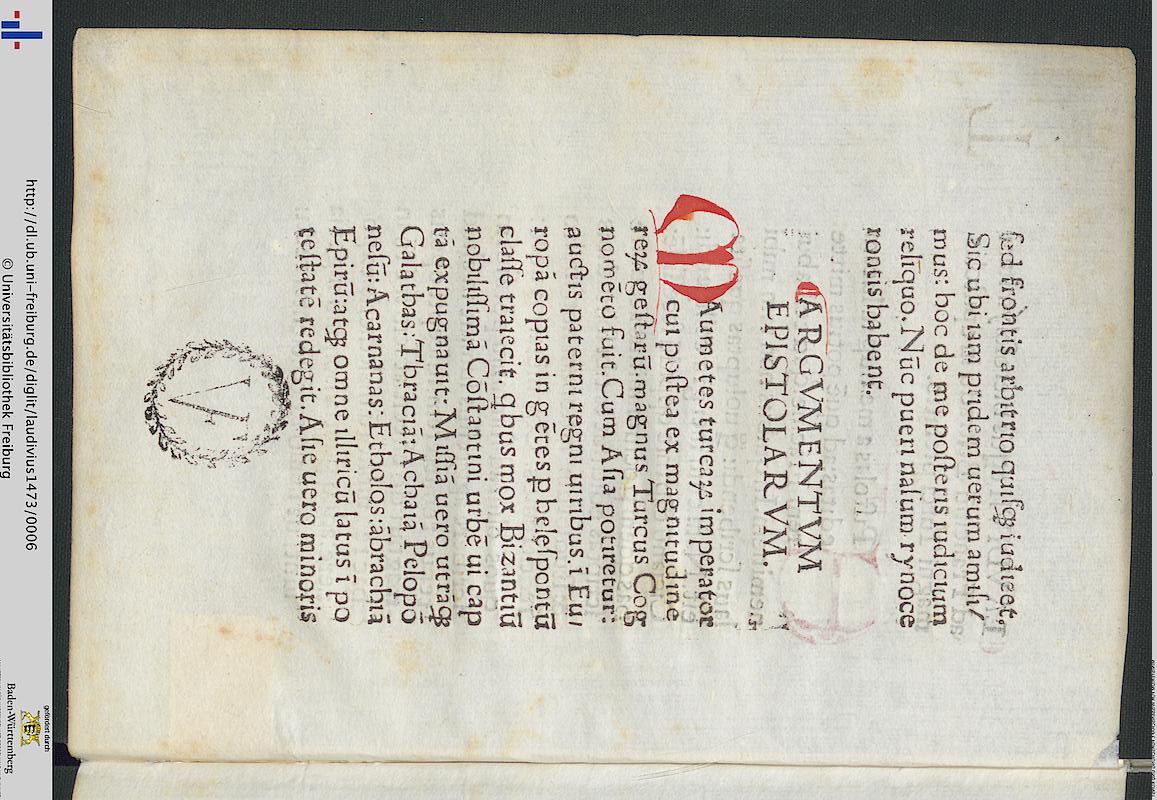 sed frontis arbitrio quisqꝫ iudicet.
Sic ubi iam pridem uerum amisi/
mus: hoc de me posteris iudicium
reliquo. Nūc pueri nasum rynoce
rontis habent.
ARGVMENTVM
EPISTOLARVM.
MAumetes turcaꝝ imperator
cui postea ex magnitudine
reꝝ gestarū. magnus Turcus Cog
nometo fuit. Cum Asia potiretur:
auctis paterni regni uiribus. ī Eu/
ropā copias in gētes p helespontū
classe traiecit. qbus mox Bizantiū
nobilissimā Cōstantini urbē ui cap
tā expugnauit: Missiā uero utrāqꝫ
Galathas: Thraciā: Achaiā Pelopō
nesū: Acarnanas: Etholos: ābrachiā
Epirū: atqꝫ omne illiricū latus ī po
testatē redegit. Asie uero minoris
http://dl.ub.uni-freiburg.de/diglit/laudivius1473/0006
© Universitätsbibliothek Freiburg
gefördert durch
Baden-Württemberg